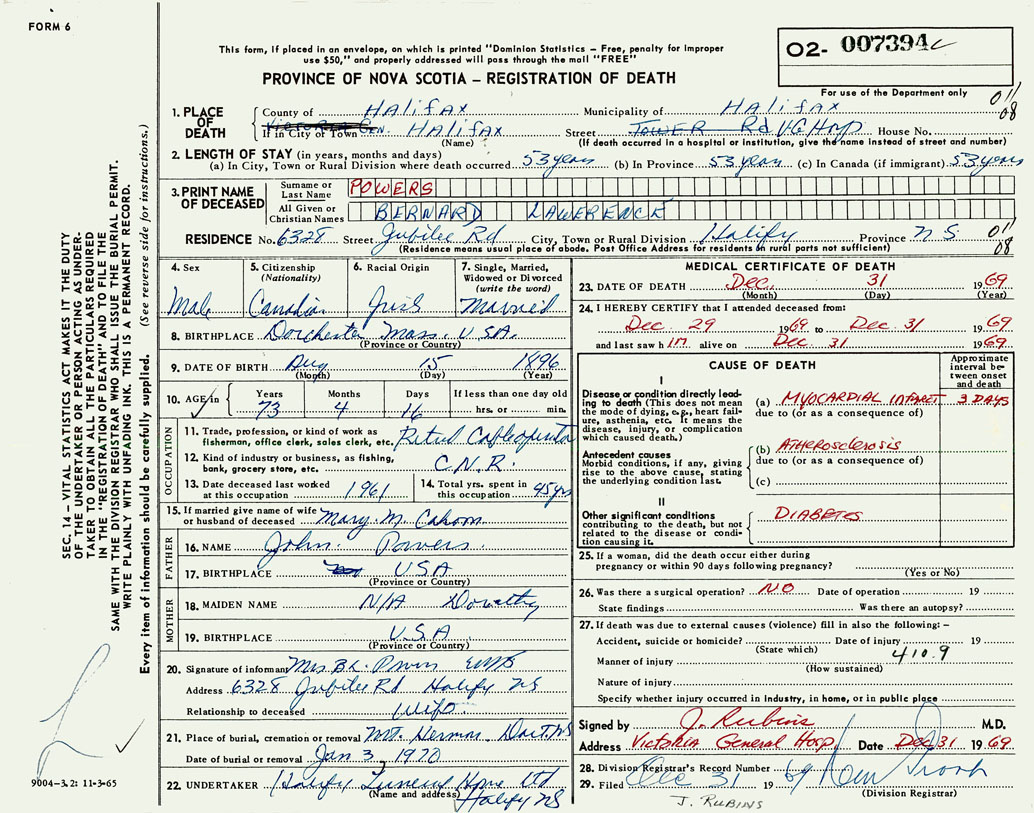 FORM 6
This form, if placed in an envelope, on which is printed "Dominion Statistics – Free, penalty for improper
use $50," and properly addressed will pass through the mail "FREE"
PROVINCE OF NOVA SCOTIA – REGISTRATION OF DEATH
O2- 007394
For use of the Department only
011
08
1. PLACE OF DEATH
County of Halifax Municipality of Halifax
If in City or Town Halifax Street Tower Rd VG Hosp House No.
(Name) (If death occurred in a hospital or institution, give the name instead of street and number)
2. LENGTH OF STAY (in years, months and days)
(a) In City, Town or Rural Division where death occurred 53 years (b) In Province 53 years (c) In Canada (if immigrant) 53 years
3. PRINT NAME OF DECEASED
Surname or Last Name POWERS
All Given or Christian Names BERNARD LAWERENCE
RESIDENCE No. 6328 Street Jubilee Rd City, Town or Rural Division Halifx Province N S
(Residence means usual place of abode. Post Office Address for residents on rural parts not sufficient)
011
08
4. Sex Male
5. Citizenship (Nationality) Canadian
6. Racial Origin
7. Single, Married, Widowed or Divorced (write the word) Married
8. BIRTHPLACE Dorchester Mass. U.S.A.
(Province or Country)
9. DATE OF BIRTH Aug 15 1896
(Month) (Day) (Year)
10. AGE in Years Months Days If less than one day old
73 4 16 hrs. or min.
OCCUPATION
11. Trade, profession, or kind of work as
fisherman, office clerk, sales clerk, etc. Retired
12. Kind of industry or business, as fishing,
bank, grocery store, etc. C.N.R.
13. Date deceased last worked at this occupation 1961
14. Total yrs. spent in this occupation 45 yrs
15. If married give name of wife
or husband of deceased Mary M.
FATHER
16. NAME John Powers
17. BIRTHPLACE USA
(Province or Country)
MOTHER
18. MAIDEN NAME N/A Dorothy
19. BIRTHPLACE U.S.A
(Province or Country)
20. Signature of informant Mrs B L Powers
Address 6328 Jubilee Rd Halifx NS
Relationship to deceased Wife
21. Place of burial, cremation or removal Mt. Hermon Dart. NS
Date of burial or removal Jan 3, 1970
22. UNDERTAKER Halifx Funeral Home Ltd
(Name and address) Halifx NS
MEDICAL CERTIFICATE OF DEATH
23. DATE OF DEATH Dec. 31 1969
(Month) (Day) (Year)
24. I HEREBY CERTIFY that I attended deceased from:
Dec. 29 1969 to Dec. 31 1969
and last saw h im alive on Dec. 31 1969
CAUSE OF DEATH
Approximate interval between onset and death
I
Disease or condition directly leading
to death (This does not mean
the mode of dying, e.g., heart failure,
asthenia, etc. It means the
disease, injury, or complication
which caused death.)
(a) MYOCARDIAL INFARCT 3 DAYS
due to (or as a consequence of)
Antecedent causes
Morbid conditions, if any, giving
rise to the above cause, stating
the underlying condition last.
(b) Atherosclerosis
due to (or as a consequence of)
(c)
II
Other significant conditions
contributing to the death, but not
related to the disease or condition
causing it.
DIABETES
25. If a woman, did the death occur either during
pregnancy or within 90 days following pregnancy?
(Yes or No)
26. Was there a surgical operation? NO Date of operation 19
State findings Was there an autopsy?
27. If death was due to external causes (violence) fill in also the following: –
Accident, suicide or homicide? Date of injury 19
(State which) 410.9
Manner of injury
(How sustained)
Nature of injury
Specify whether injury occurred in industry, in home, or in public place
Signed by J. Rubins M.D.
Address Victoria General Hosp. Date Dec 31 1969
28. Division Registrar's Record Number
29. Filed Dec 31 19 69
(Division Registrar)
J. RUBINS
SEC. 14 – VITAL STATISTICS ACT MAKES IT THE DUTY
OF THE UNDERTAKER OR PERSON ACTING AS UNDER-
TAKER TO OBTAIN ALL THE PARTICULARS REQUIRED
IN THE "REGISTRATION OF DEATH" AND TO FILE THE
SAME WITH THE DIVISION REGISTRAR WHO SHALL ISSUE THE BURIAL PERMIT.
WRITE PLAINLY WITH UNFADING INK. THIS IS A PERMANENT RECORD.
Every item of information should be carefully supplied. (See reverse side for instructions.)
9004–3.2: 11-3-65